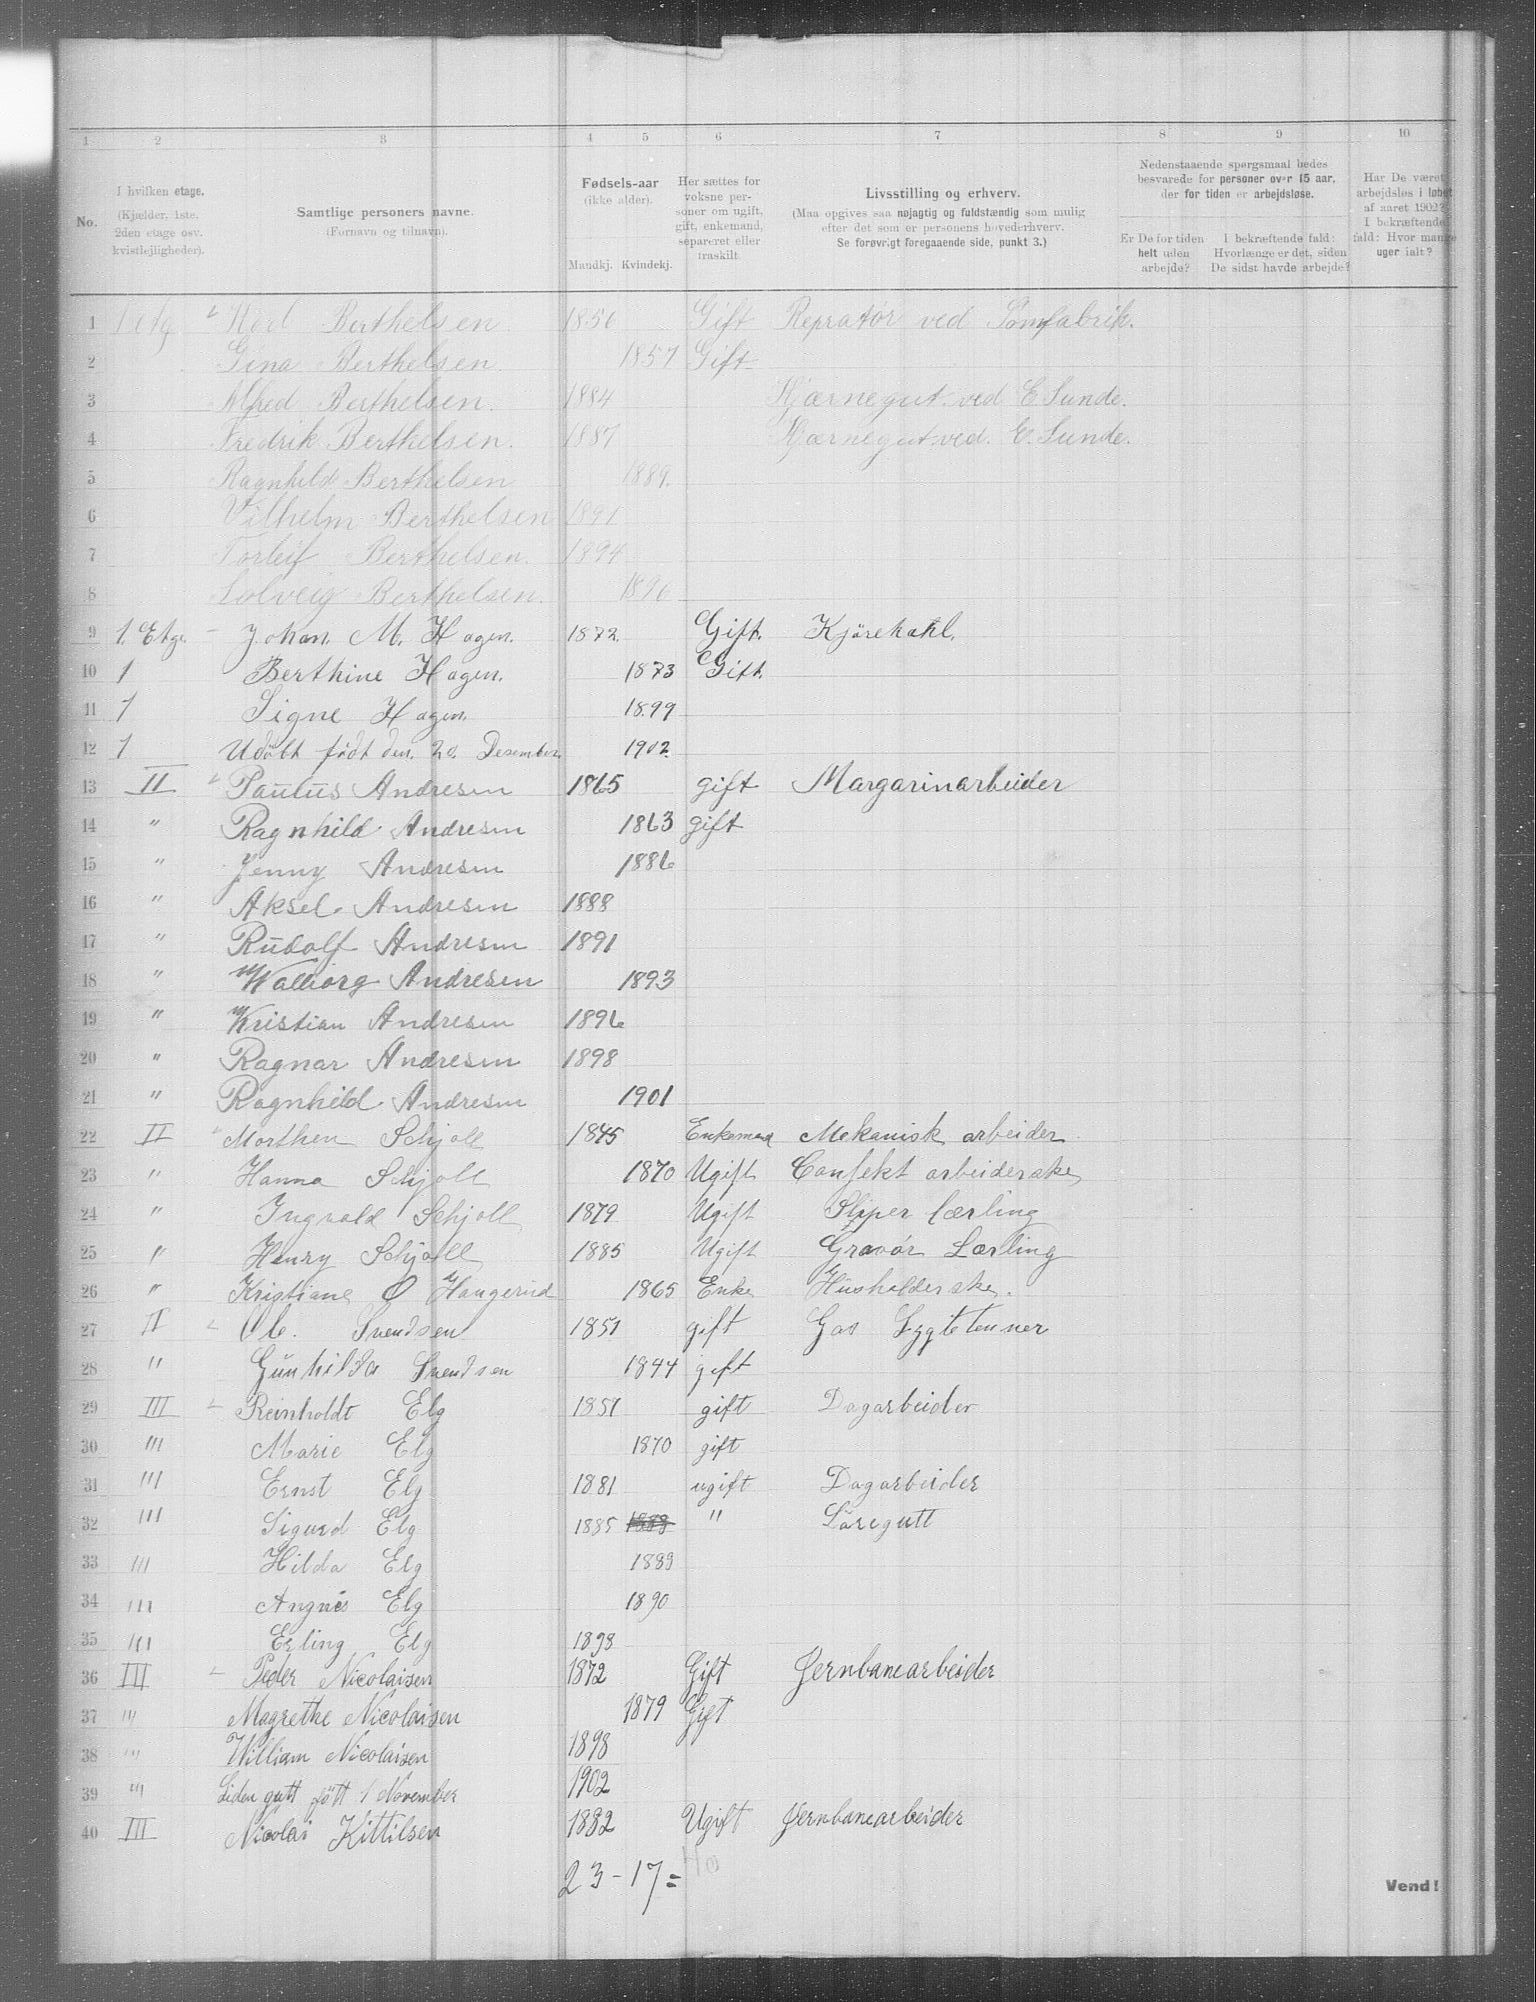 1 2 3 4 5 6 7 8 9 10
No.
I hvilken etage.
(Kjælder, 1ste,
2den etage osv.
kvistlejligheder).
Samtlige personers navne.
(Fornavn og tilnavn).
Fødsels-aar
(ikke alder).
Mandkj. Kvindekj.
Her sættes for
voksne per-
soner om ugift,
gift, enkemand,
separeret eller
fraskilt.
Livsstilling og erhverv.
(Maa opgives saa nøjagtig og fuldstændig som mulig
efter det som er personens hovederhverv.
Se forøvrigt foregaaende side, punkt 3.)
Nedenstaaende spørgsmaal bedes
besvarede for personer over 15 aar,
der for tiden er arbejdsløse.
Er De for tiden
helt uden
arbejde?
I bekræftende fald:
Hvorlænge er det, siden
De sidst havde arbejde?
Har De været
arbejdsløs i løbet
af aaret 1902?
I bekræftende
fald: Hvor mange
uger ialt?
1 1 etg Karl Berthelsen 1856 Gift Repratør ved Sømfabrik.
2 Gina Berthelsen 1857 Gift
3 Alfred Berthelsen. 1884 Hjærnegut ved E Sunde.
4 Fredrik Berthelsen. 1887 Hjærnegut ved. E. Sunde.
5 Ragnhild Berthelsen 1889.
6 Vilhelm Berthelsen 1891
7 Torleif Berthelsen. 1894
8 Solveig Berthelsen. 1896
9 1. Etge. Johan M. Hagen. 1872. Gift. Kjørekahl.
10 1 Berthine Hagen. 1873 Gift.
11 1 Signe Hagen. 1899
12 1 Udøbt født den. 20. Desember 1902.
13 II Paulus Andresen 1865 gift Margarinarbeider
14 " Ragnhild Andresen 1863 gift
15 " Jenny Andresen 1886
16 " Aksel Andresen 1888
17 " Rudolf Andresen 1891
18 " Walborg Andresen 1893
19 " Kristian Andresen 1896
20 " Ragnar Andresen 1898
21 " Ragnhild Andresen 1901
22 II Morthen Schjoll 1845 Enkemand Mekanisk arbeider
23 " Hanna Schjoll 1870 Ugift Consfekt arbeiderske
24 " Ingvald Schjoll 1879 Ugift Sliper lærling
25 " Henry Schjoll 1885 Ugift Gravør Lærling
26 " Kristiane Ø Haugerud 1865 Enke Husholderske.
27 II Ole. Svendsen 1851 gift Gas Lygtetenner
28 " Gunhilda Svendsen 1844 gift
29 III Reinholdt Elg 1851 gift Dagarbeider
30 " Marie Elg 1870 gift
31 " Ernst Elg 1881 ugift Dagarbeider
32 " Sigurd Elg 1885 1883 " Løregutt
33 " Hilda Elg 1889
34 " Angnes Elg 1890
35 " Erling Elg 1898
36 III Peder Nicolaisen 1872 Gift Jernbanearbeider
37 " Magrethe Nicolaisen 1879 Gift
38 " William Nicolaisen 1898
39 " Liden gutt født 1 November 1902
40 III Nicolai Kittilsen 1882 Ugift Jernbanearbeider
23 - 17 = 40
Vend!